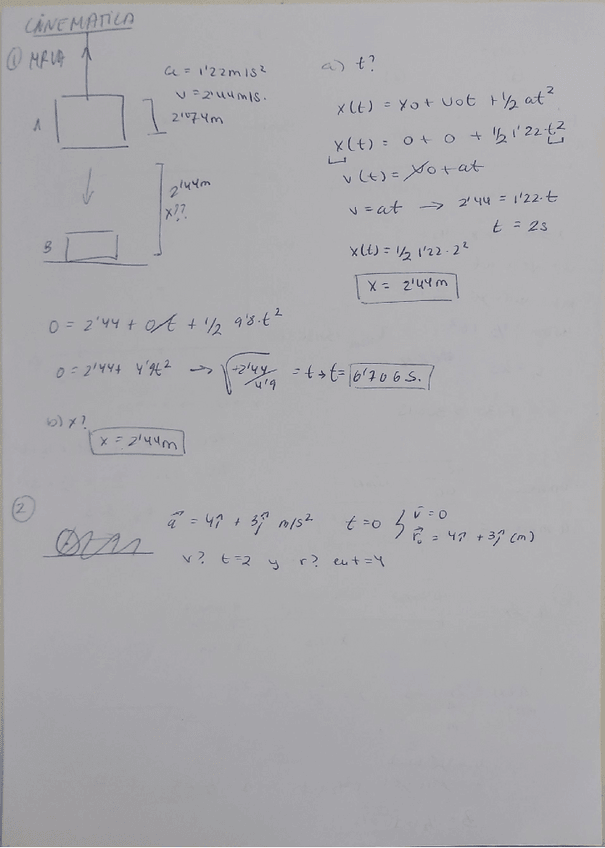 CINEMATICA
① MRUA
a = 1'22 m/s²
v = 2'44 m/s.
2'074m
A
2'44m
x??
B
a) t?
x(t) = x0 + v0t + 1/2 at²
x(t) = 0 + 0 + 1/2 1'22·t²
v(t) = v0 + at
v = at → 2'44 = 1'22·t
t = 2s
x(t) = 1/2 1'22·2²
x = 2'44m
0 = 2'44 + 0t + 1/2 9'8·t²
0 = 2'44 + 4'9t² → √(-2'44/4'9) = t → t = 0'706 s.
b) x?
x = 2'44m
②
a⃗ = 4î + 3ĵ m/s² t=0 { v̄ = 0
r⃗₀ = 4î + 3ĵ (m)
v? t=2 y r? en t=4